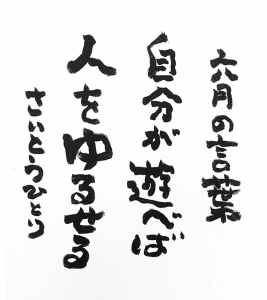 六月の言葉
自分が遊べば
人をゆるせる
さいとうひとり